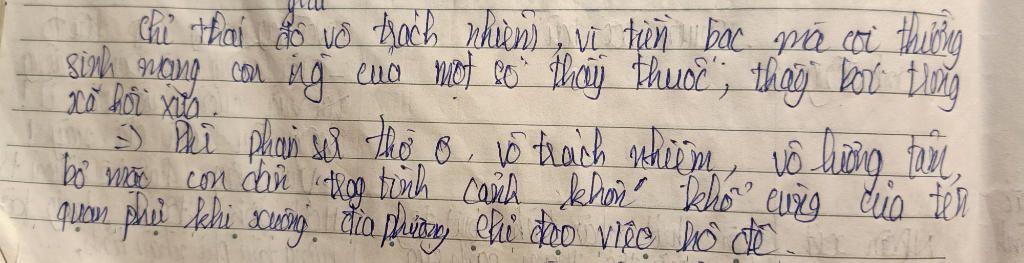 chỉ thái độ vô trách nhiệm, vì tiền bạc mà coi thường
sinh mạng con ng của một số thầy thuốc, thầy bói trong
xã hội xưa.
=> Phê phán sự thờ ơ, vô trách nhiệm, vô lương tâm,
bỏ mặc con dân trog tình cảnh khốn khổ cùng của tên
quan phủ khi xuống địa phương chỉ đạo việc hộ đê.